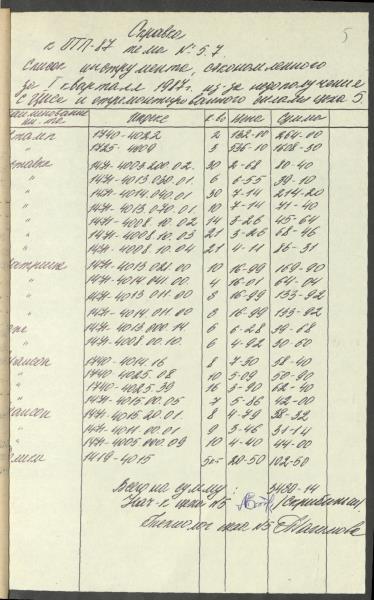 Справка
5
к ОТП-87 тема № 5.7.
Список инструмента, сэкономленного
за I квартал 1987г. из-за недополучения
с ЦИСа и отремонтированного силами цеха 5.
Наименование ин-та Индекс к-во цена сумма
Штамп 1740-4022 2 132-00 264-00
" 1725-4009 3 536-10 1608-30
Вставка 1471-4003.200.02. 30 2-68 80-40
" 1471-4013.020.01. 6 6-55 39-10
" 1471-4014.040.01 30 7-14 214-20
" 1471-4013.070.01 10 7-14 71-40
" 1471-4008.10.02 14 3-26 45-64
" 1471-4008.10.03 21 3-26 68-46
" 1471-4008.10.04 21 4-11 86-31
Матрица 1471-4013.021.00 10 16-99 169-90
" 1471-4014.041.00 4 16-01 64-04
" 1471-4013.011.00 8 16-99 133-92
" 1471-4014.011.00 8 16-99 133-92
1471-4013.000.14 6 6-28 39-68
" 1471-4008.00.10 6 4-92 30-60
Пуансон 1740-4014.16 8 7-30 58-40
" 1740-4025.08 10 5-09 50-90
" 1740-4025.39 16 3-90 62-40
" 1471-4015.00.05 7 5-86 42-00
Пуансон 1471-4015.20.01 8 4-79 38-32
" 1471-4011.00.01 9 3-46 31-14
" 1471-4005.000.09 10 4-40 44-00
1419-4015 5шт 20-50 102-50
Всего на сумму: 3480-14
Нач-к цеха №5 /Скрибикин/
Технолог цеха №5